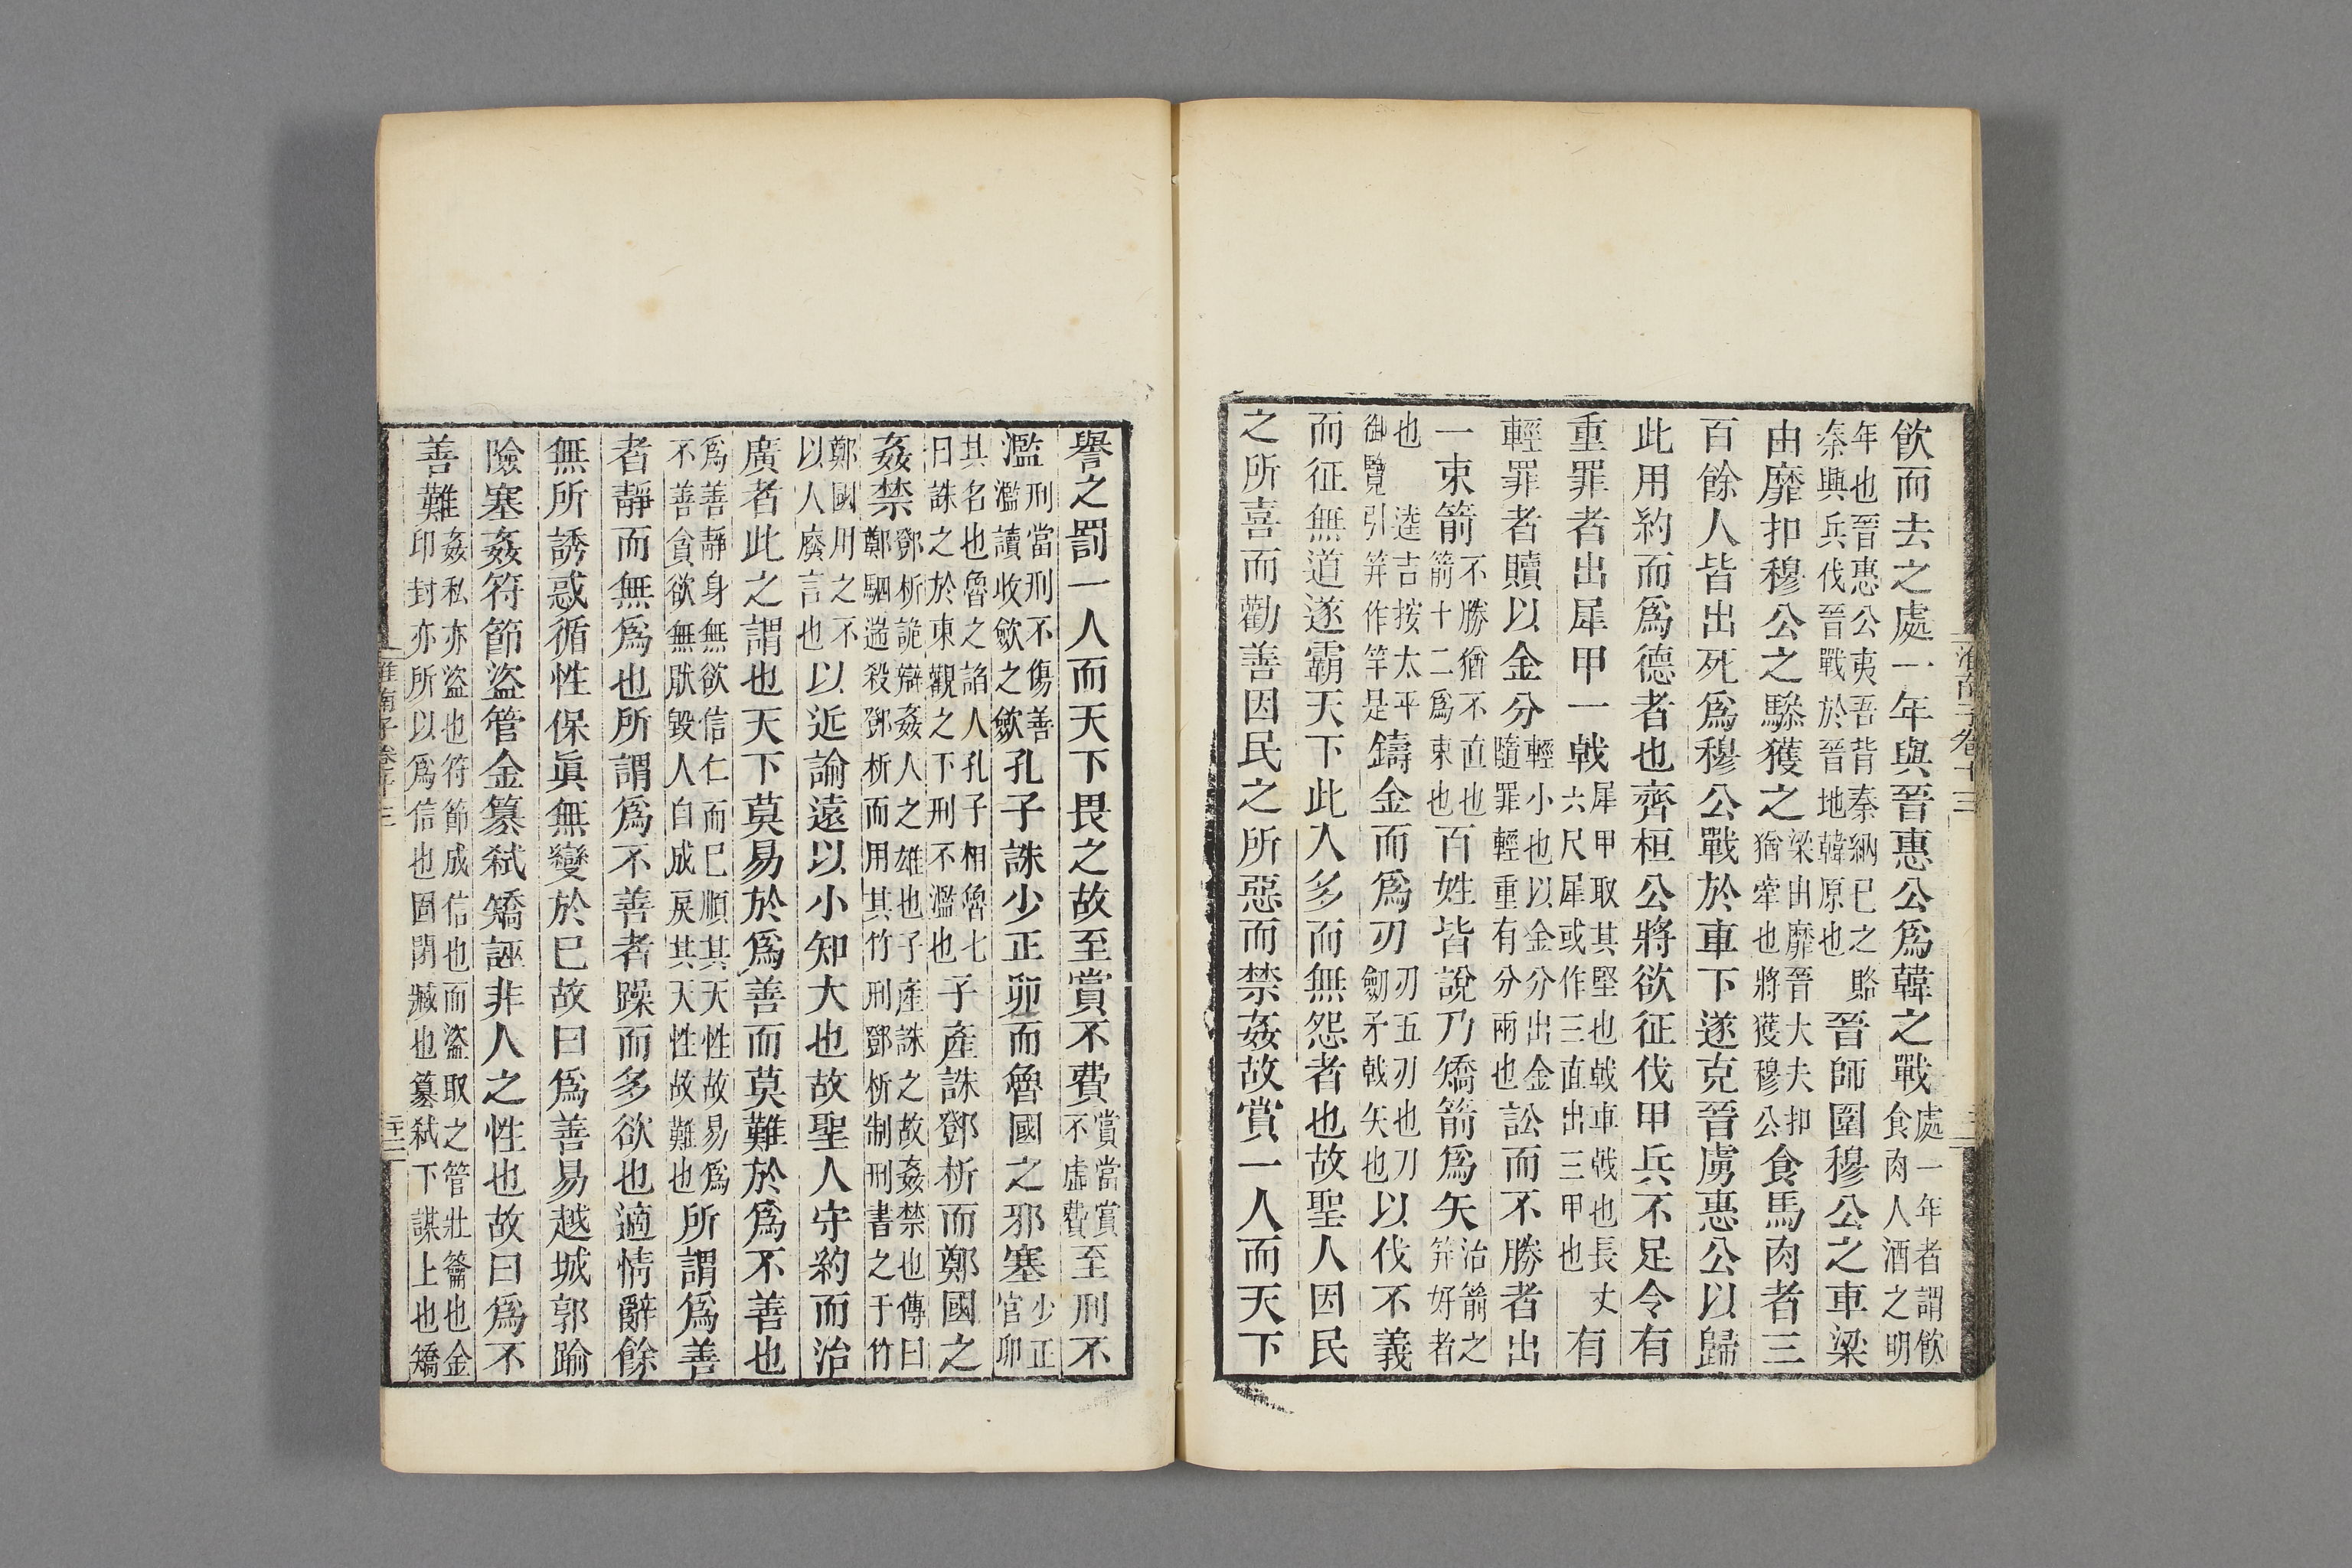 飲而去之處一年與晉惠公爲韓之戰處一年者謂飲食肉人酒之明
年也晉惠公夷吾背秦納已之賂秦興兵伐晉戰於晉地韓原也晉師圍穆公之車梁
由靡扣穆公之驂獲之梁由靡晉大夫扣猶牽也將獲穆公食馬肉者三
百餘人皆出死爲穆公戰於車下遂克晉虜惠公以歸
此用約而爲德者也齊桓公將欲征伐甲兵不足令有
重罪者出犀甲一戟犀甲取其堅也戟車戟也長丈六尺犀或作三直出三甲也有
輕罪者贖以金分輕小也以金分出金隨罪輕重有分兩也訟而不勝者出
一束箭不勝猶不直也箭十二爲束也百姓皆說乃矯箭爲矢治箭之笄好者
也逵吉按太平御覽引笄作竿是鑄金而爲刃刃五刃也刀劒矛戟矢也以伐不義
而征無道遂霸天下此入多而無怨者也故聖人因民
之所喜而勸善因民之所惡而禁姦故賞一人而天下
譽之罰一人而天下畏之故至賞不費賞當賞不虛費至刑不
濫刑當刑不傷善濫讀收斂之斂孔子誅少正卯而魯國之邪塞少正官卯
其名也魯之諂人孔子相魯七日誅之於東觀之下刑不濫也子產誅鄧析而鄭國之
姦禁鄧析詭辯姦人之雄也子產誅之故姦禁也傳曰鄭駟遄殺鄧析而用其竹刑鄧析制刑書之于竹
鄭國用之不以人廢言也以近諭遠以小知大也故聖人守約而治
廣者此之謂也天下莫易於爲善而莫難於爲不善也
爲善靜身無欲信仁而已順其天性故易爲不善貪欲無猒毀人自成戾其天性故難也所謂爲善
者靜而無爲也所謂爲不善者躁而多欲也適情辭餘
無所誘惑循性保眞無變於已故曰爲善易越城郭踰
險塞姦符節盜管金篡弒矯誣非人之性也故曰爲不
善難姦私亦盜也符節成信也而盜取之管壯籥也金印封亦所以爲信也固閉臧也篡弒下謀上也矯
淮南子卷十三
淮南子卷十三